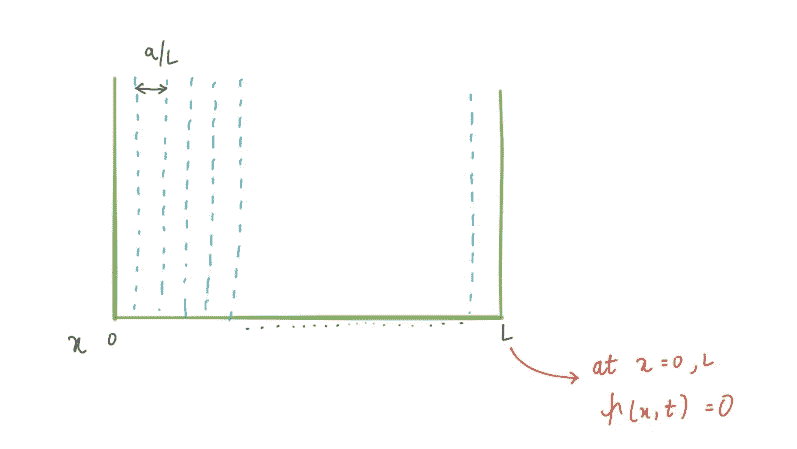 a/L
x 0 L
at x=0, L
p(x,t) = 0